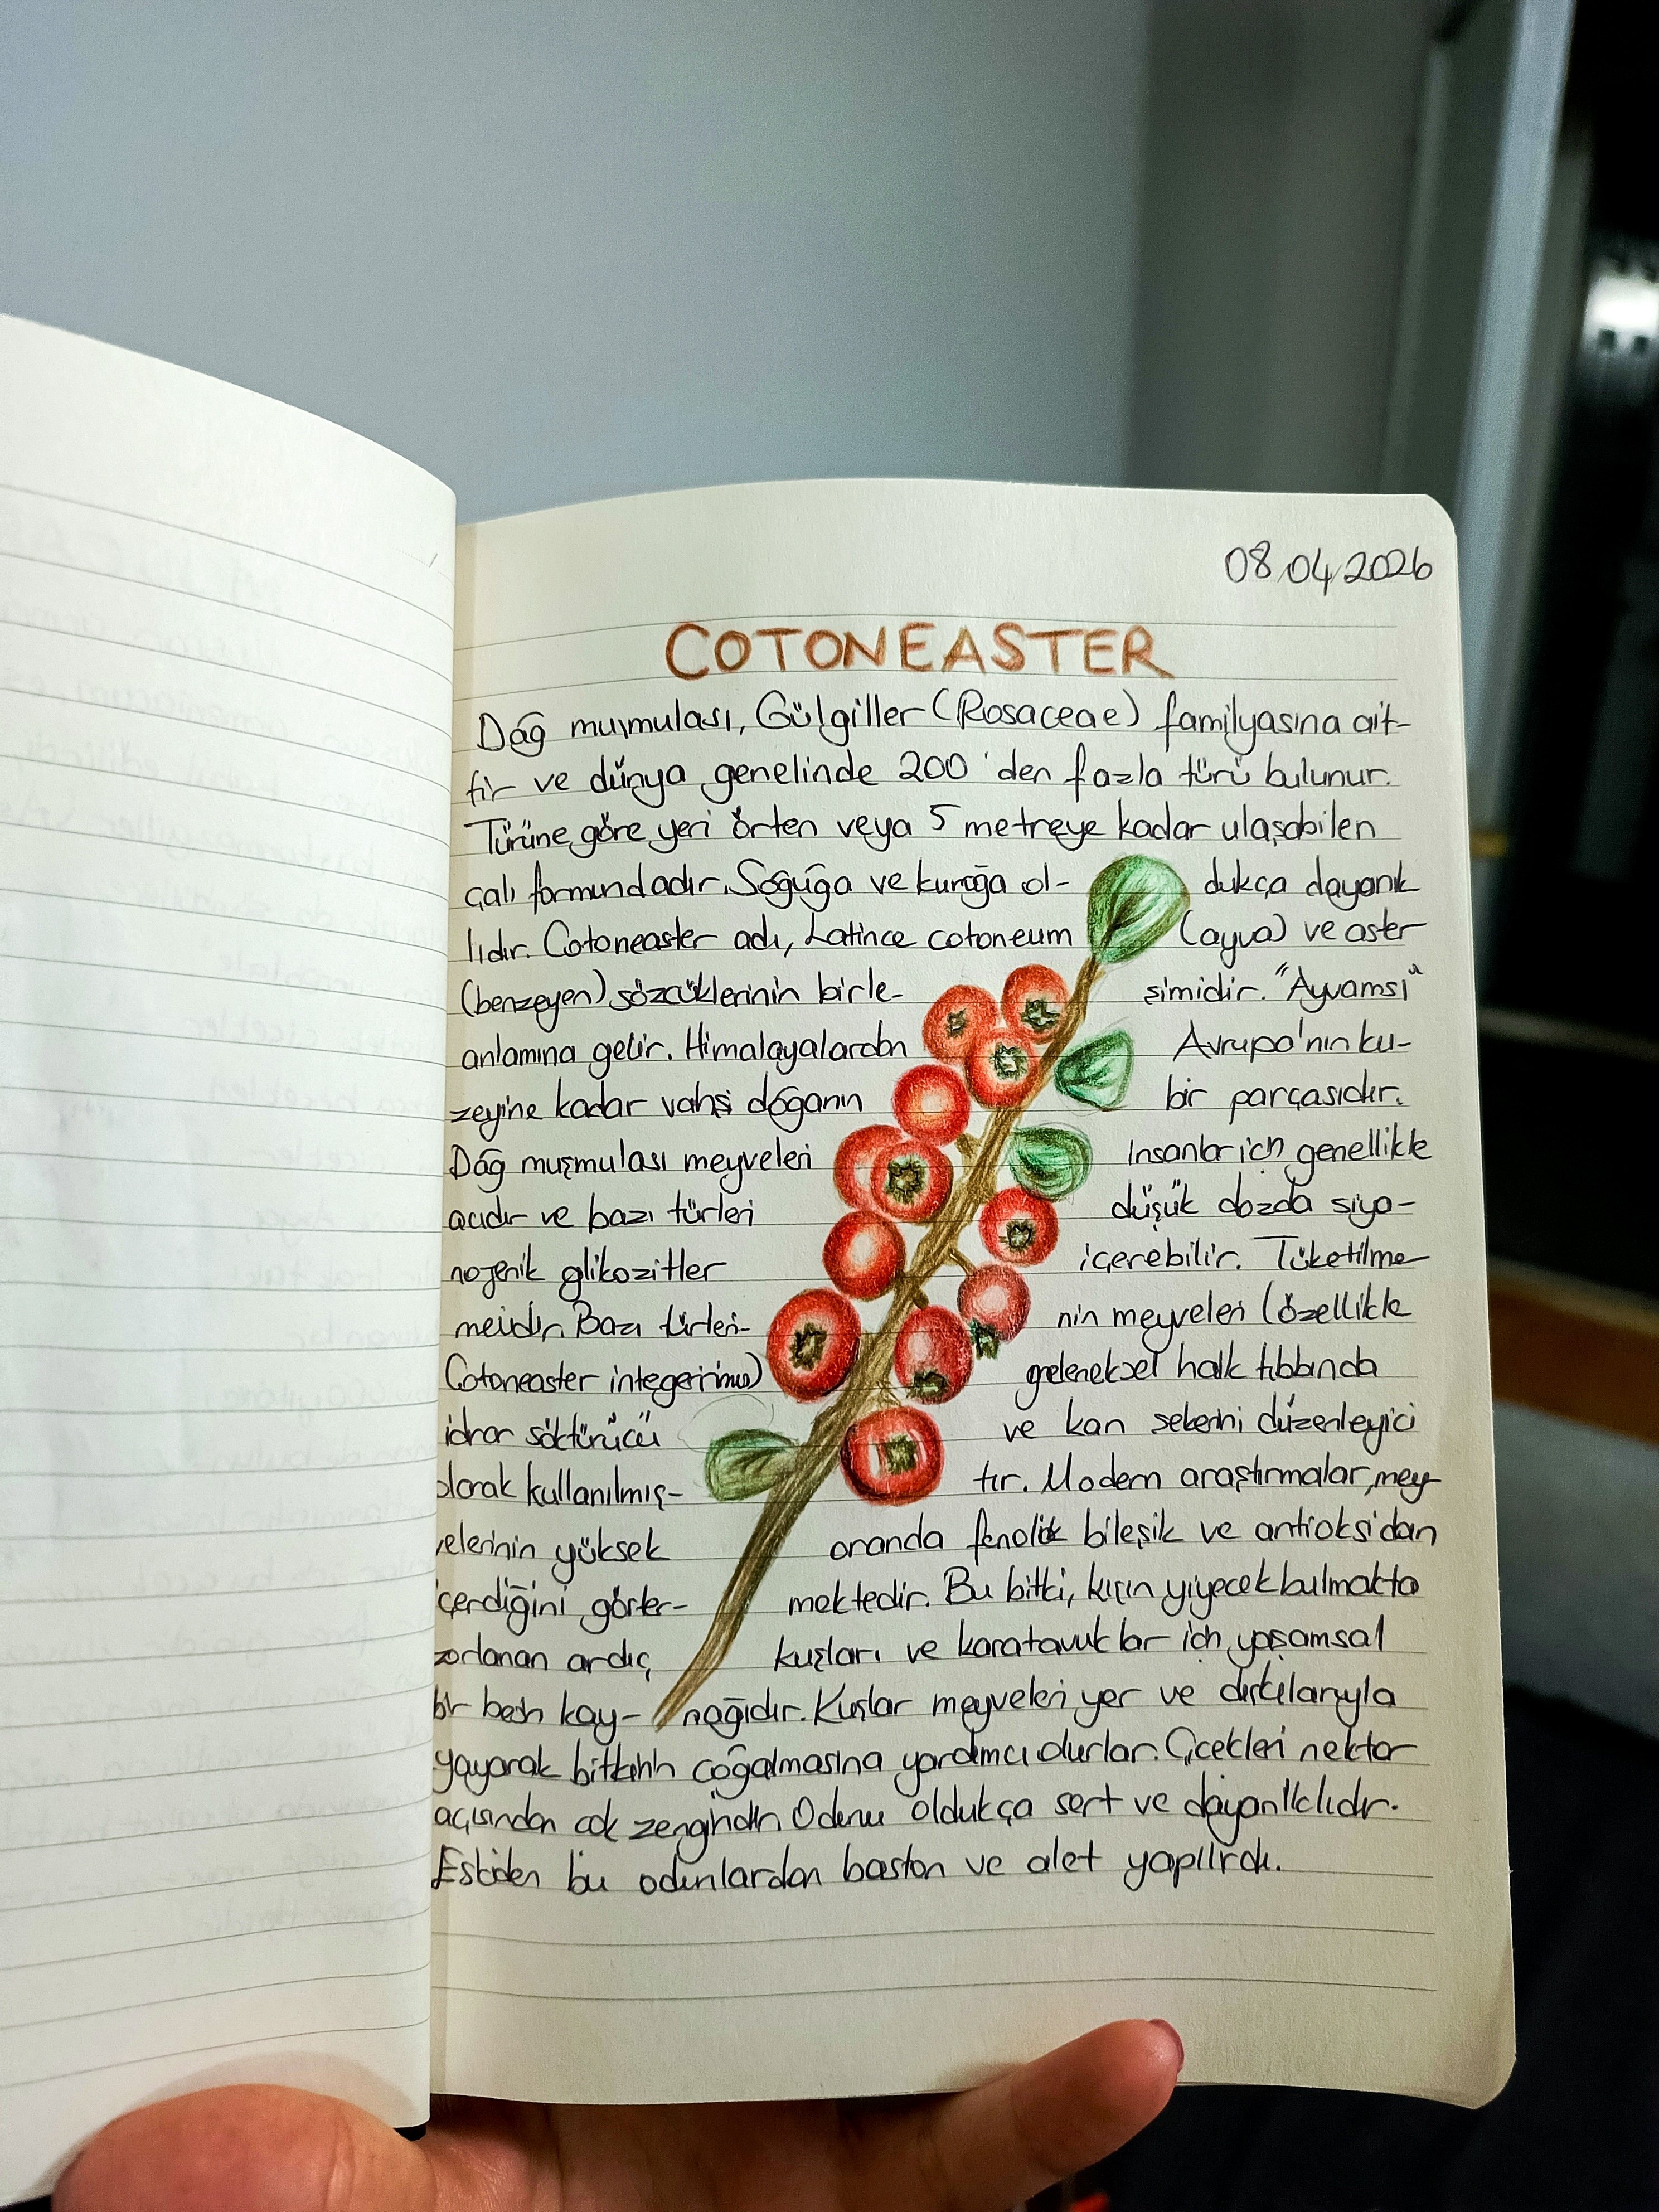 08.04.2026
COTONEASTER
Dağ muşmulası, Gülgiller (Rosaceae) familyasına ait-
tir ve dünya genelinde 200'den fazla türü bulunur.
Türüne göre yeri örten veya 5 metreye kadar ulaşabilen
çalı formundadır. Soğuğa ve kurağa ol- dukça dayanık
lıdır. Cotoneaster adı, Latince cotoneum (ayva) ve aster
(benzeyen) sözcüklerinin birle- şimidir. "Ayvamsı"
anlamına gelir. Himalayalardan Avrupa'nın ku-
zeyine kadar vahşi doğanın bir parçasıdır.
Dağ muşmulası meyveleri insanlar için genellikle
acıdır ve bazı türleri düşük dozda siya-
nojenik glikozitler içerebilir. Tüketilme-
melidir. Bazı türleri- nin meyveleri (özellikle
Cotoneaster integerrimus) geleneksel halk tıbbında
idrar söktürücü ve kan şekerini düzenleyici
olarak kullanılmış- tır. Modern araştırmalar, mey-
velerinin yüksek oranda fenolik bileşik ve antioksidan
içerdiğini göster- mektedir. Bu bitki, kışın yiyecek bulmakta
zorlanan ardıç kuşları ve karatavuklar için yaşamsal
bir besin kay- nağıdır. Kuşlar meyveleri yer ve dışkılarıyla
yayarak bitkinin çoğalmasına yardımcı olurlar. Çiçekleri nektar
açısından çok zengindir. Odunu oldukça sert ve dayanıklıdır.
Eskiden bu odunlardan baston ve alet yapılırdı.